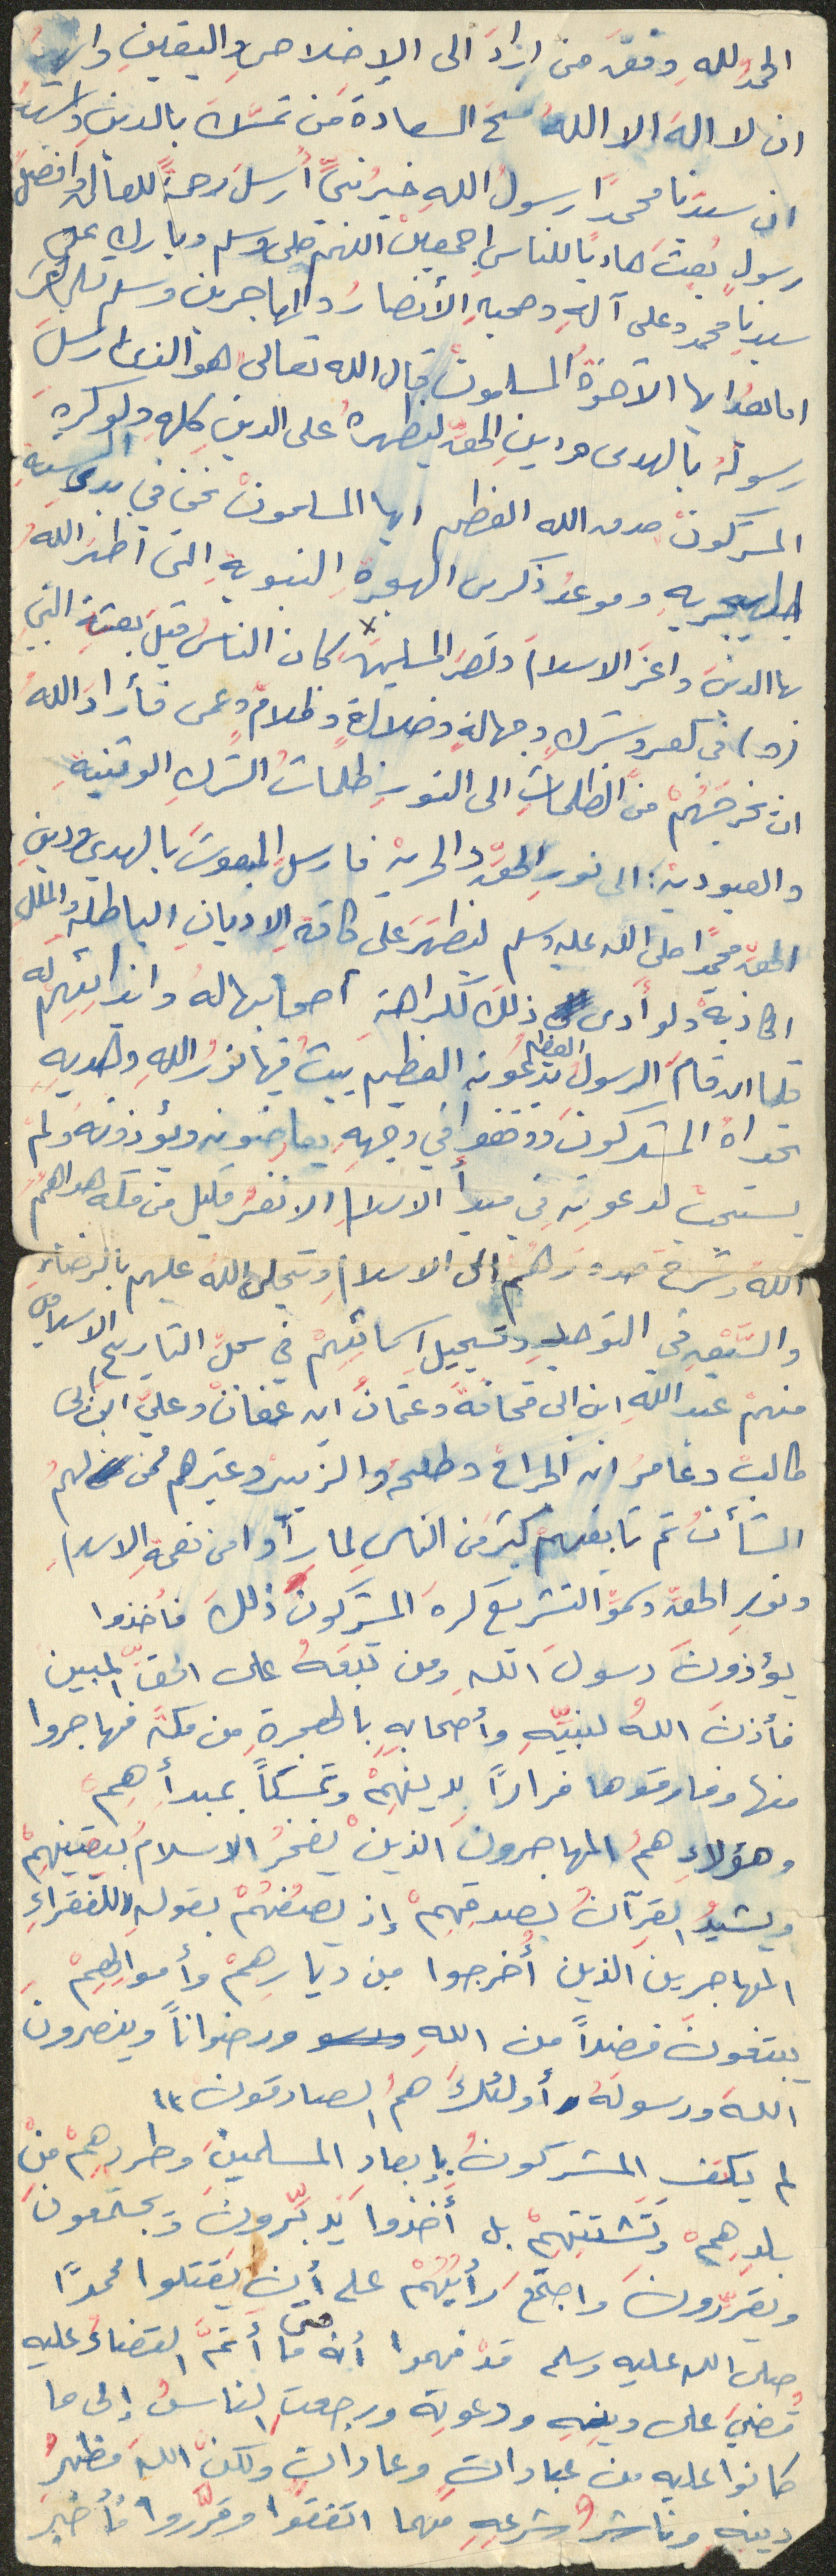 الحمدُ للهِ وفقَ من ارادَ الى الإخلاصِ واليقينِ واشهدُ
ان لا الهَ الا اللهُ منحَ السعادةَ من تمسّكَ بالدينِ واشهدُ
ان سيدَنا محمدًا رسولُ اللهِ خيرُ نبيٍّ أُرسلَ رحمةً للعالمين وافضلُ
رسولٍ بُعثَ هاديًا للناسِ اجمعينْ اللهم صلى وسلم وبارك على
سيدنا محمد وعلى آلهِ وصحبهِ الأنصارِ والمهاجرين وسلم تسليمًا
اما بعدُ ايها الأخوةُ المسلمونْ قال الله تعالى هو الذى ارسلَ
رسولهُ بالهدى ودينِ الحقِّ ليظهرهُ على الدينِ كلهِ ولو كرهِ
المشركونْ صدق الله العظيم ايها المسلمونْ نحن في بدىء السنةِ
الهجريهِ وموعدُ ذكرى الهجرةِ النبويةِ التى اظهرَ اللهُ
بها الدينَ واعزَ الاسلامَ ونصرَ المسلمينَ كان الناسُ قبلَ بعثةِ النبيِ
(ص) في كفرٍ وشركٍ وجهالةٍ وضلالةٍ وظلامٍ وعمى فأرادَ اللهُ
ان يخرجَهُمْ منَ الظلماتِ الى النورِ ظلماتُ الشركِ الوثنيةِ
والعبوديةْ: الى نورِ الحقِّ والحريهْ فارسلَ المبعوثَ بالهدي ودينِ
الحقِّ محمدًا صلى الله عليه وسلم ليظهرَ على كافةِ الاديانِ الباطلهْ والمللِ
الكاذبهْ ولو أدى ذلكَ لكراهةِ أصحابها لهُ وايذائِهِمْ له
فلما ان قامَ الرسولُ العظيم بدعوته العظيم يبثُ فيها نورُ اللهِ وهديهِ
تحداهُ المشركونَ ووقفوا في وجههِ يعارضونه ويؤذونهُ ولمْ
يستجبْ لدعوتِهِ في مبدأ الاسلامِ الا نفرٌ قليل من مكه هداهمُ
اللهُ وشرحَ صدورَهم الى الاسلامِ وتجلى اللهُ عليهم بالرضاءِ
والسَّبْقِ في التوحيدِ وتسجيلِ اسمائِهِمْ في سجلِّ التاريخِ الاسلامي
منهمْ عبد اللهِ ابن ابى قحافةَ وعثمانَ ابن عفانْ وعليْ ابن ابى
طالبْ وعامرُ ابن الجراحْ وطلحهْ والزبيرْ وغيرهم ممن لهمُ
الشأنُ ثم تابعهمْ كثيرٌ من الناسِ لما رأوا من نعمةِ الاسلامِ
ونورِ الحقِّ وسموِّ التشريعِ كرهَ المشركونَ ذلكَ فأخذوا
يؤذونَ رسولَ اللهِ ومن تبعَهُ على الحقِّ المبين
فأذنَ اللهُ لنبيِّهِ وأصحابهِ بالهجرةِ من مكةَ فهاجروا
منها وفارقوها فرارًا بدينهِمْ وتمسكاً بمبدأِهِمْ
وهؤلاءِ همُ المهاجرونَ الذينْ يفخرُ الاسلامُ بيقينهِمْ
ويشيدُ القرآنُ بصدقهِمْ إذ يصفُهُمْ بقولهِ (للفقراءِ
المهاجرينَ الذين أُخرجوا من ديارِهمْ وأموالهِمْ
يبتغونَ فضلاً من اللهِ ورضواناً وينصرونَ
اللهَ ورسولَهُ أولئكَ همُ الصادقون))
لم يكتفِ المشركونُ بإبعادِ المسلمينَ وطردِهِمْ منْ
بلدِهِمْ وتَشتتِهِمْ بل أخذوا يُدَبِّرونَ ويجتمعونَ
ويقرِّرونَ واجتمعَ رَأْيُهُمْ على أن يقتلوا محمدًا
صلى الله عليه وسلم قدْ فهموا أنه متى ما أتمَّ القضاءُ عليه
قُضيَ على دينِهِ ودعوتِهِ ورجعتِ الناسُ إلى ما
كانوا عليه من عباداتٍ وعاداتٍ ولكنَّ اللهَ مظهرُ
دينِهِ وناشرُ شرعِهِ مهما اتفقوا وقرَّروا فأخبرَ